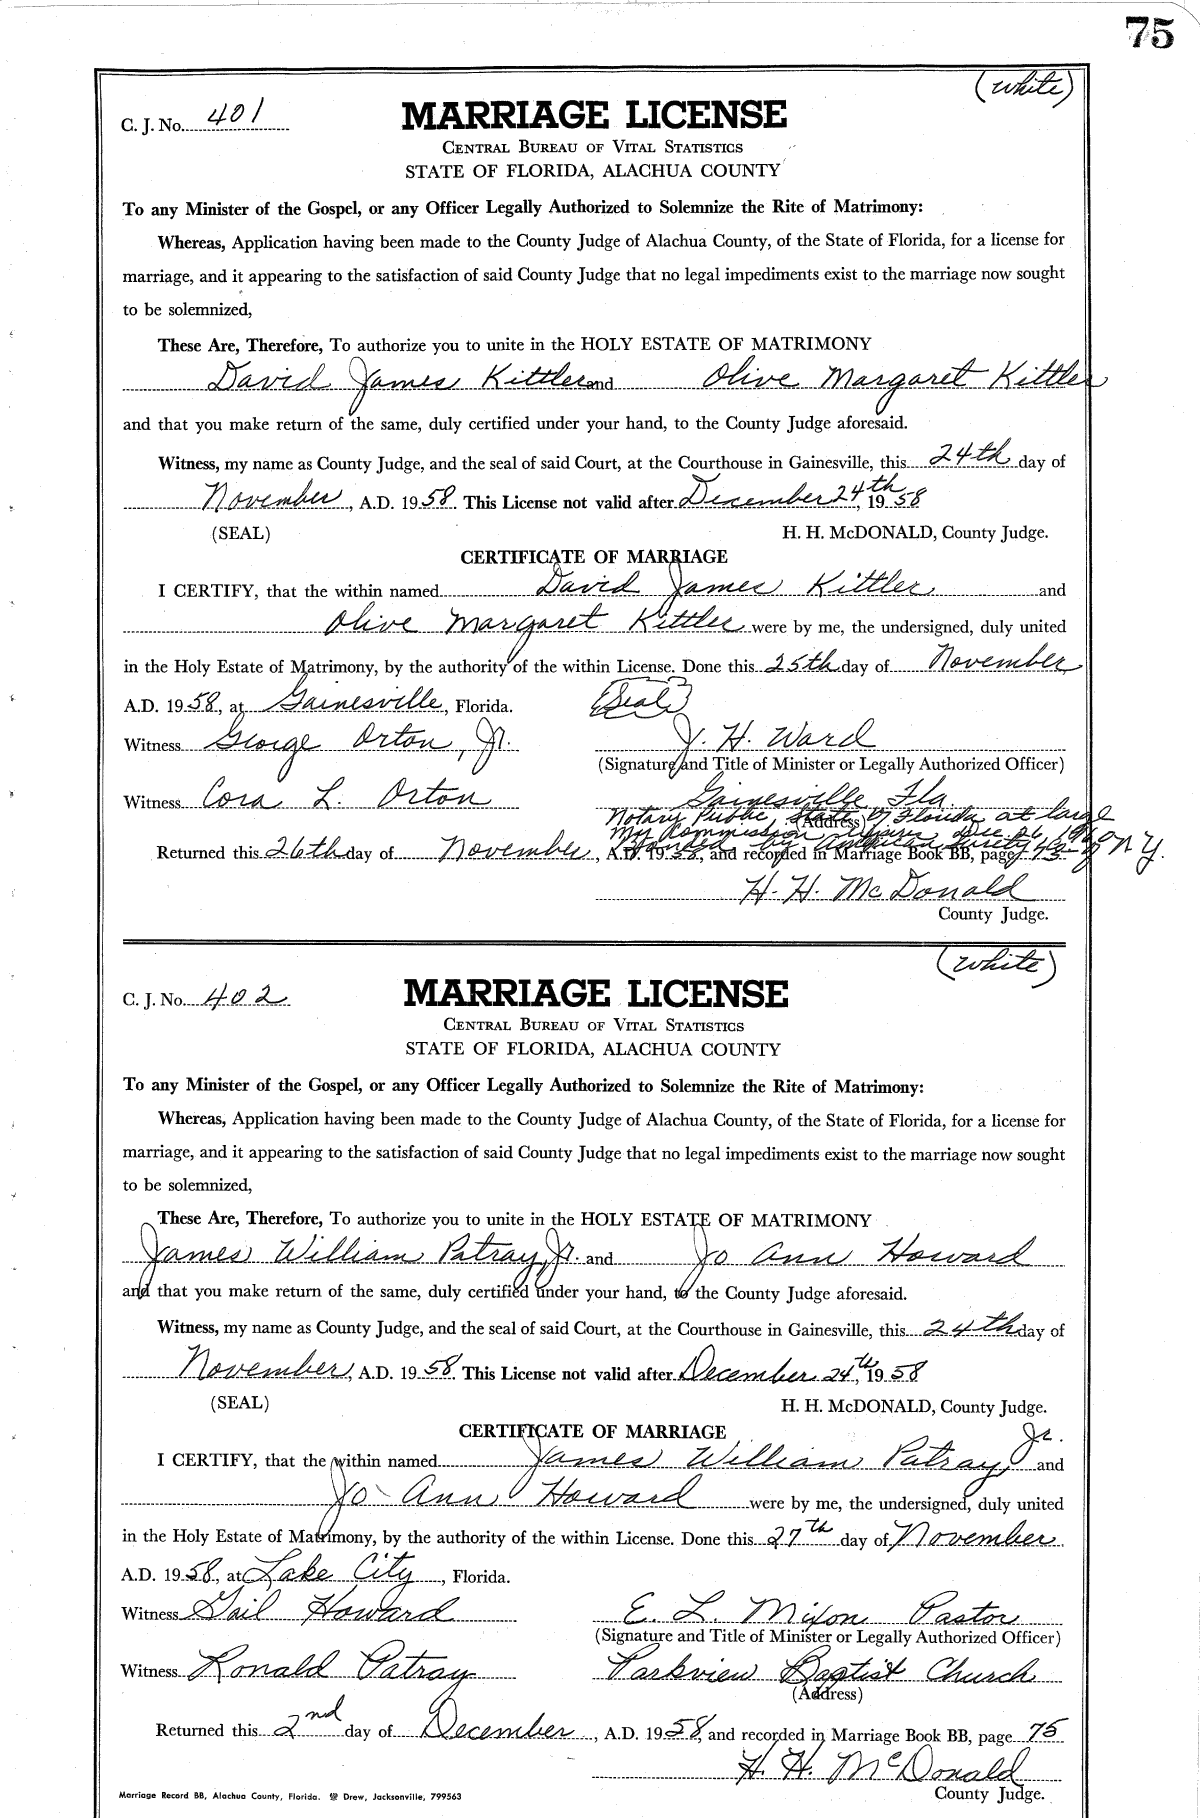 75
(White)
C. J. No. 401
MARRIAGE LICENSE
CENTRAL BUREAU OF VITAL STATISTICS
STATE OF FLORIDA, ALACHUA COUNTY
To any Minister of the Gospel, or any Officer Legally Authorized to Solemnize the Rite of Matrimony:
Whereas, Application having been made to the County Judge of Alachua County, of the State of Florida, for a license for
marriage, and it appearing to the satisfaction of said County Judge that no legal impediments exist to the marriage now sought
to be solemnized,
These Are, Therefore, To authorize you to unite in the HOLY ESTATE OF MATRIMONY
David James Kittler and Olive Margaret Kittler
and that you make return of the same, duly certified under your hand, to the County Judge aforesaid.
Witness, my name as County Judge, and the seal of said Court, at the Courthouse in Gainesville, this 24th day of
November, A.D. 1958. This License not valid after December 24th, 1958
(SEAL) H. H. McDONALD, County Judge.
CERTIFICATE OF MARRIAGE
I CERTIFY, that the within named David James Kittler and
Olive Margaret Kittler were by me, the undersigned, duly united
in the Holy Estate of Matrimony, by the authority of the within License. Done this 25th day of November
A.D. 1958, at Gainesville, Florida. (Seal)
Witness George Orton, Jr. J. H. Ward
(Signature and Title of Minister or Legally Authorized Officer)
Witness Cora L. Orton Gainesville Fla.
Notary Public, State of Florida at large
(Address)
My Commission expires Dec. 26, 1960
Bonded by American Surety Co. of N.Y.
Returned this 26th day of November, A.D. 1958, and recorded in Marriage Book BB, page 75
H. H. McDonald
County Judge.
(White)
C. J. No. 402
MARRIAGE LICENSE
CENTRAL BUREAU OF VITAL STATISTICS
STATE OF FLORIDA, ALACHUA COUNTY
To any Minister of the Gospel, or any Officer Legally Authorized to Solemnize the Rite of Matrimony:
Whereas, Application having been made to the County Judge of Alachua County, of the State of Florida, for a license for
marriage, and it appearing to the satisfaction of said County Judge that no legal impediments exist to the marriage now sought
to be solemnized,
These Are, Therefore, To authorize you to unite in the HOLY ESTATE OF MATRIMONY
James William Patray, Jr. and Jo Ann Howard
and that you make return of the same, duly certified under your hand, to the County Judge aforesaid.
Witness, my name as County Judge, and the seal of said Court, at the Courthouse in Gainesville, this 24th day of
November, A.D. 1958. This License not valid after December 24th, 1958
(SEAL) H. H. McDONALD, County Judge.
CERTIFICATE OF MARRIAGE
I CERTIFY, that the within named James William Patray, Jr. and
Jo Ann Howard were by me, the undersigned, duly united
in the Holy Estate of Matrimony, by the authority of the within License. Done this 27th day of November
A.D. 1958, at Lake City, Florida.
Witness Gail Howard E. L. Mixon Pastor
(Signature and Title of Minister or Legally Authorized Officer)
Witness Ronald Patray Parkview Baptist Church
(Address)
Returned this 2nd day of December, A.D. 1958, and recorded in Marriage Book BB, page 75
H. H. McDonald
County Judge.
Marriage Record BB, Alachua County, Florida. Drew, Jacksonville, 799563